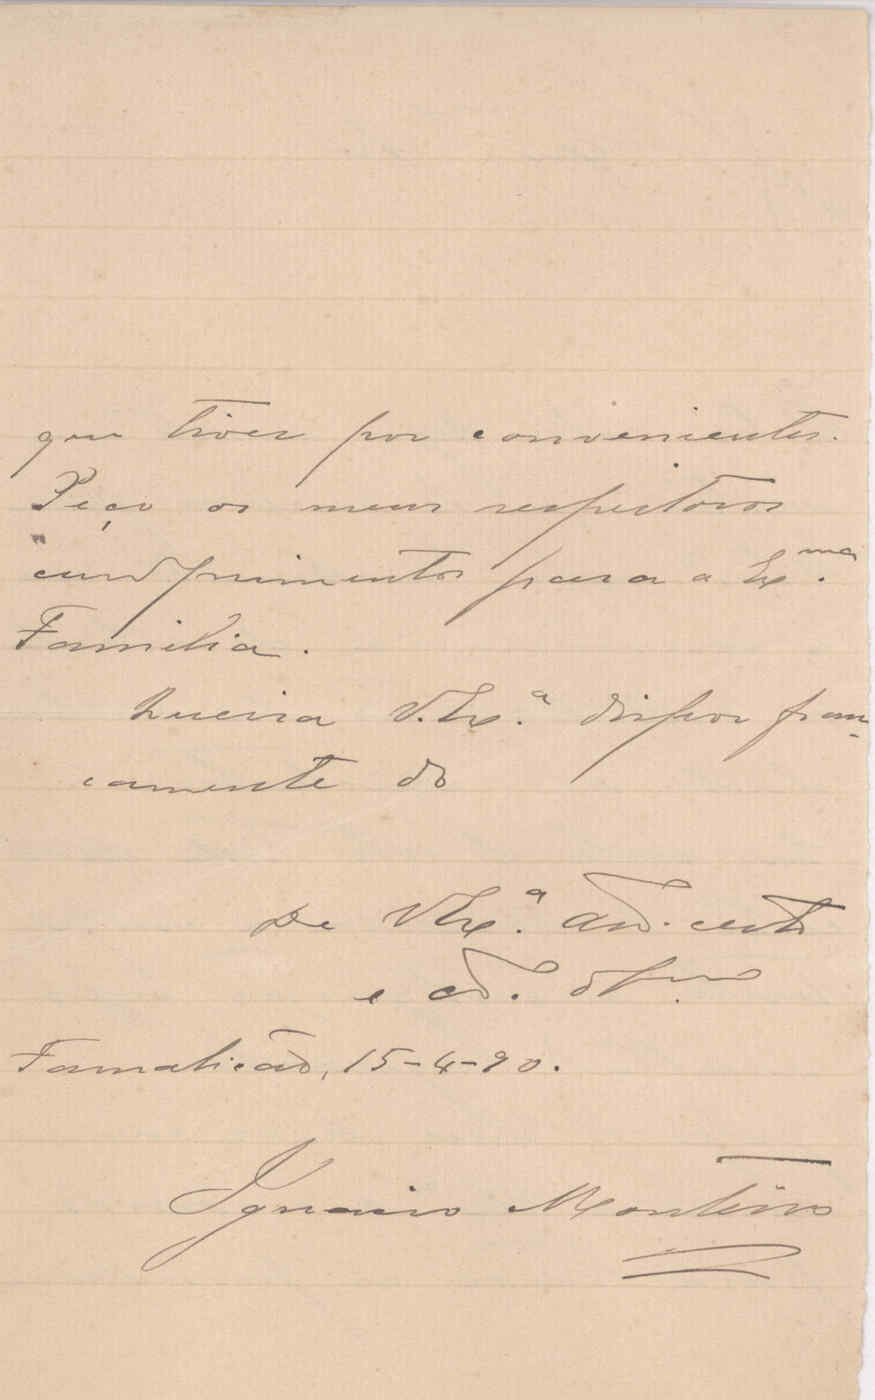 que tiver por convenientes.
Peço os meus respeitosos
cumprimentos para a Ex.ma
Familia.
Queira V. Ex.ª dispor fran-
camente do
De V Ex.ª am.
e cr.º obr.
Famalicão, 15-4-90.
Ignacio Monteiro